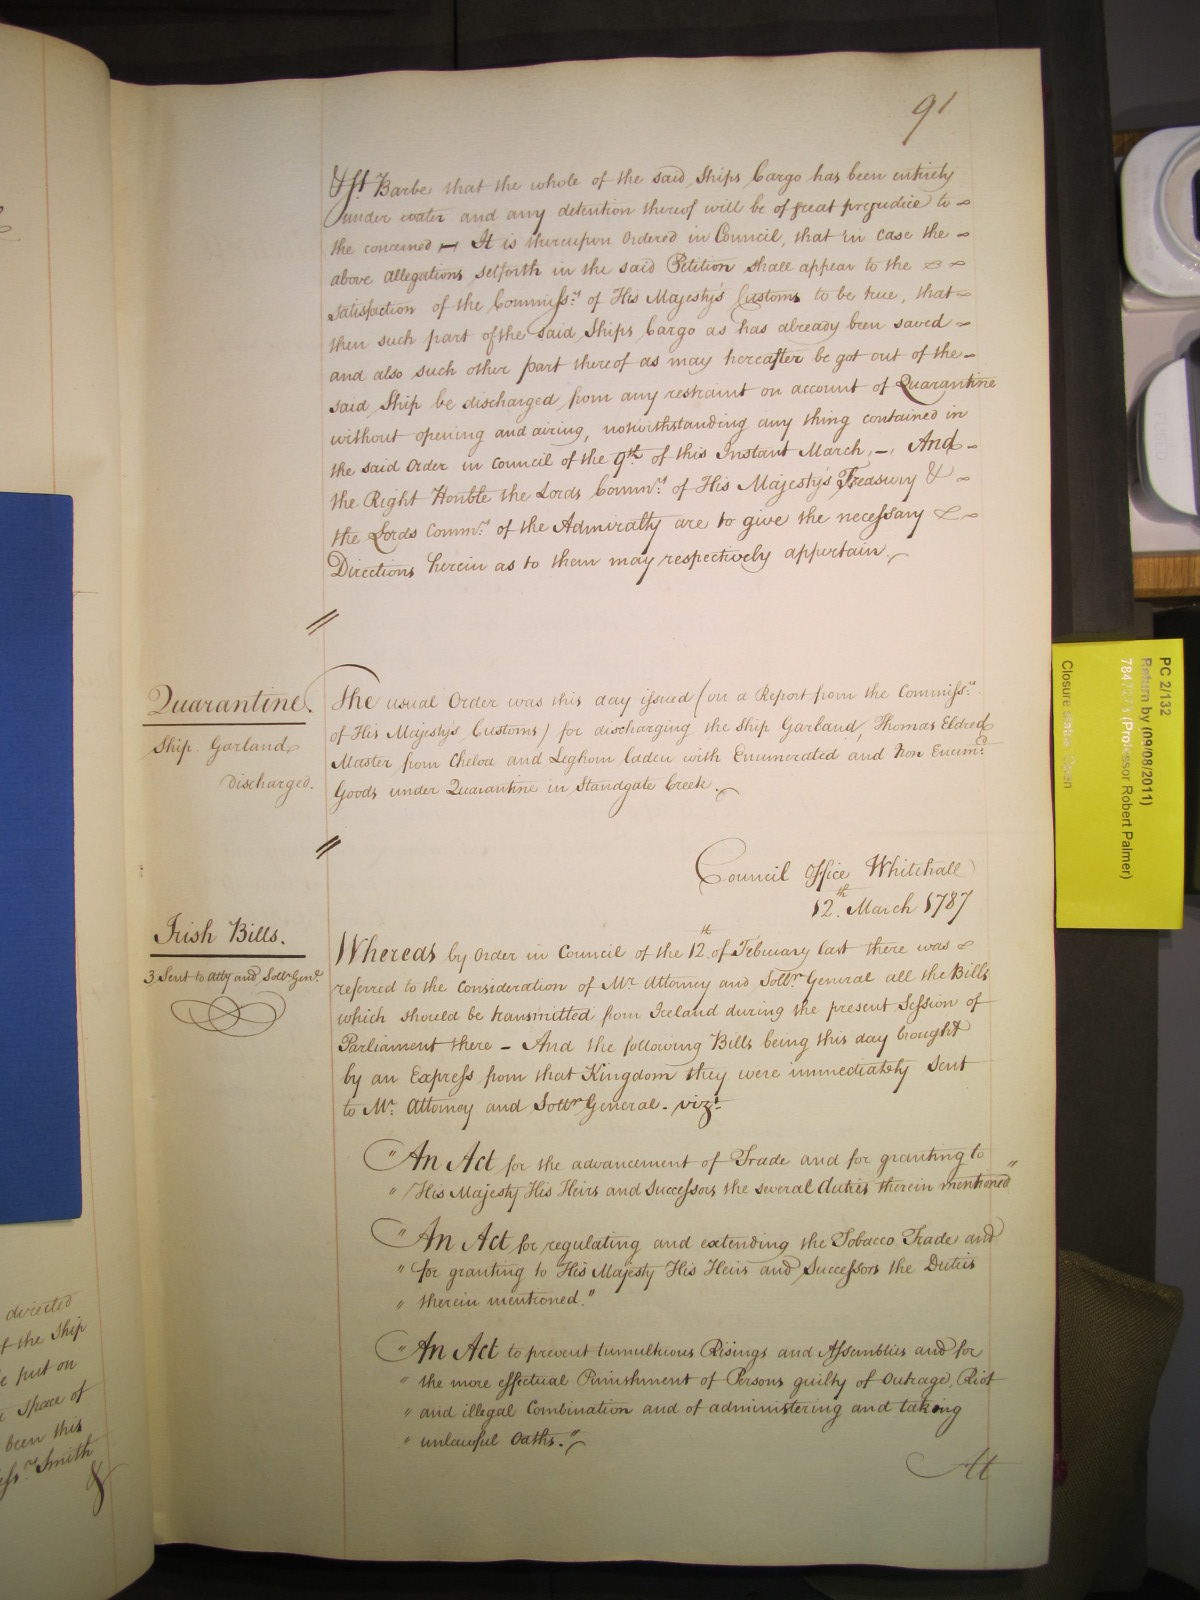 91
& St Barbe that the whole of the said Ships Cargo has been entirely
under water and any detention thereof will be of great prejudice to
the concerned — It is thereupon Ordered in Council, that in case the
above Allegations setforth in the said Petition shall appear to the
satisfaction of the Commissrs of His Majesty's Customs to be true, that
then such part of the said Ships Cargo as has already been saved
and also such other part thereof as may hereafter be got out of the
said Ship be discharged from any restraint on account of Quarantine
without opening and airing, notwithstanding any thing contained in
the said Order in Council of the 9th of this Instant March, —. And
the Right Honble the Lords Commrs of His Majesty's Treasury &
the Lords Commrs of the Admiralty are to give the necessary
Directions herein as to them may respectively appertain.
Quarantine.
Ship Garland
Discharged.
The usual Order was this day issued (on a Report from the Commissrs
of His Majestys Customs) for discharging the Ship Garland, Thomas Eldred
Master from Cheloa and Leghorn laden with Enumerated and Non Enumd
Goods under Quarantine in Standgate Creek.
Council Office Whitehall
12th March 1787
Irish Bills.
3 Sent to Atty and Sollr Genl
Whereas by Order in Council of the 12th of February last there was
referred to the Consideration of Mr Attorney and Sollr General all the Bills
which should be transmitted from Ireland during the present Session of
Parliament there — And the following Bills being this day brought
by an Express from that Kingdom they were immediately sent
to Mr Attorney and Sollr General. vizt
"An Act for the advancement of Trade and for granting to
" His Majesty His Heirs and Successors the several Duties therein mentioned"
"An Act for regulating and extending the Tobacco Trade and
" for granting to His Majesty His Heirs and Successors the Duties
" therein mentioned."
"An Act to prevent tumultuous Risings and Assemblies and for
" the more effectual Punishment of Persons guilty of Outrage, Riot
" and illegal Combination and of administering and taking
" unlawful Oaths."
At
directed
of the Ship
put on
space of
been this
Smith
&
PC 2/132
Return by (09/08/2011)
(Professor Robert Palmer)
Closure status Open